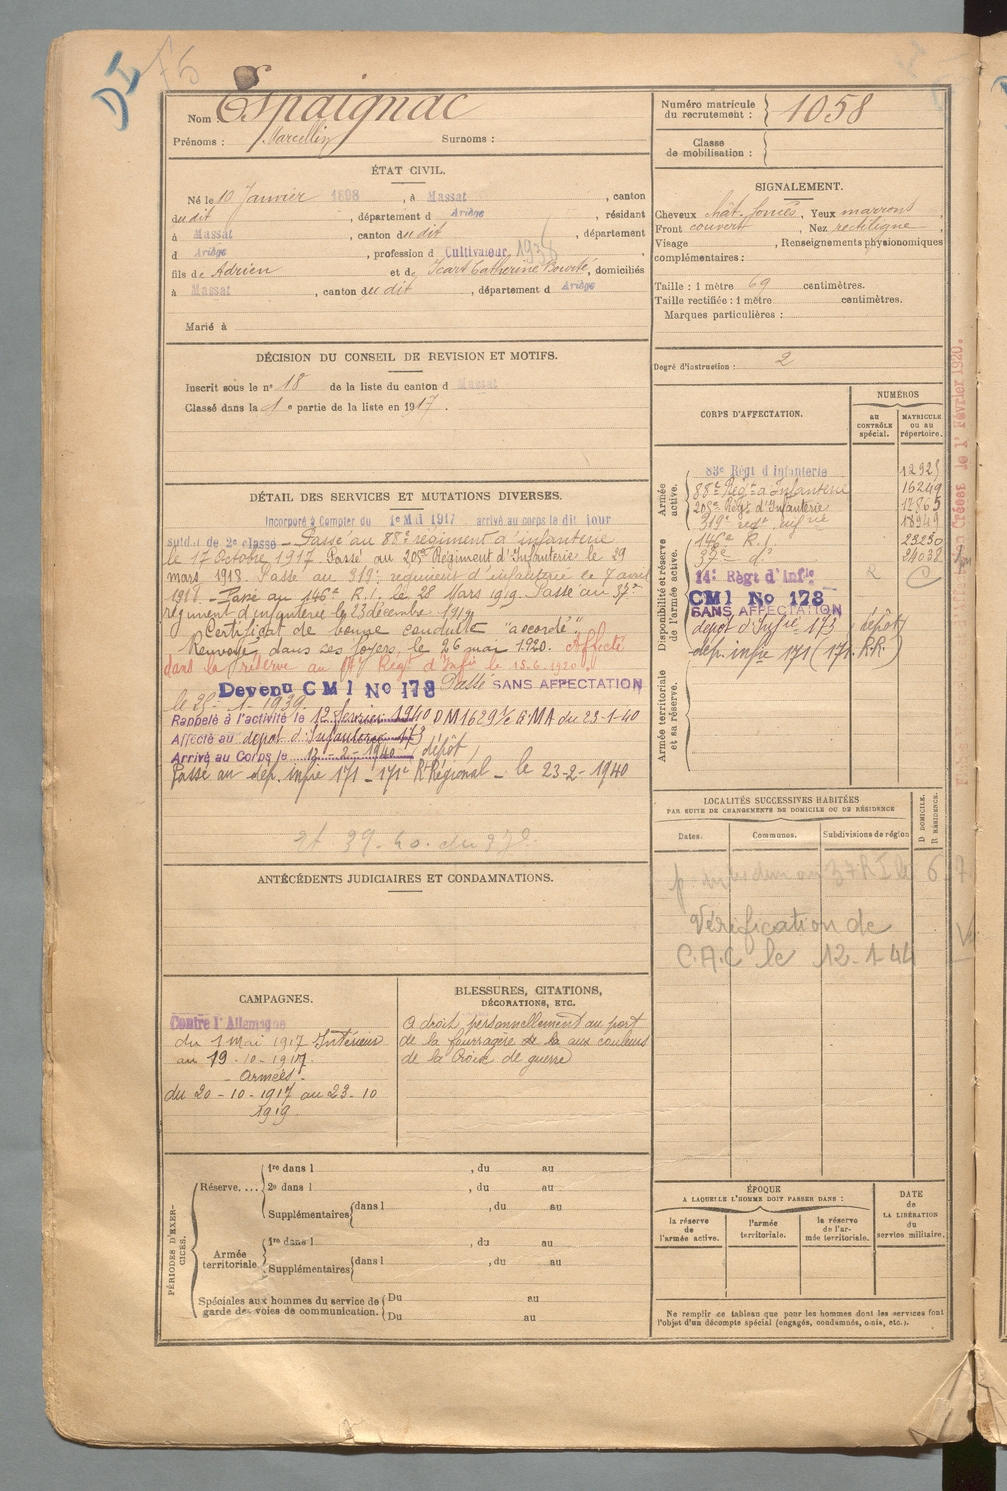 DI
Nom Espaignac
Prénoms : Marcellin Surnoms :
ÉTAT CIVIL.
Né le 10 Janvier 1898, à Massat, canton
dudit, département d Ariège, résidant
à Massat, canton dudit, département
d Ariège, profession d Cultivateur,
fils de Adrien et de Icart Catherine, domiciliés
à Massat, canton dudit, département d Ariège
Marié à
DÉCISION DU CONSEIL DE REVISION ET MOTIFS.
Inscrit sous le n° 18 de la liste du canton d Massat
Classé dans la 1e partie de la liste en 1917.
DÉTAIL DES SERVICES ET MUTATIONS DIVERSES.
Incorporé à Compter du 1e Mai 1917 arrivé au corps le dit jour
soldt de 2e classe – Passé au 88e régiment d'infanterie
le 17 Octobre 1917. Passé au 205e Régiment d'Infanterie le 29
mars 1918. Passé au 319e régiment d'infanterie le 7 avril
1918. – Passé au 146e R.I. le 28 Mars 1919. Passé au 37e
régiment d'infanterie le 23 décembre 1919
Certificat de bonne conduite "accordé".
Renvoyé dans ses foyers le 26 mai 1920. Affecté
dans la réserve au 14e Régt d'Infie le 15.6.1920
Devenu CMI No 178 Passé SANS AFFECTATION
le 25-1-1939.
Rappelé à l'activité le 12 février 1940 DM 1629 1/c EMA du 23-1-40
Affecté au depot d'Infanterie 173
Arrivé au Corps le 12-2-1940 dépôt
Passé au dep. infie 171 – 171e R. Régional – le 23-2-1940
ANTÉCÉDENTS JUDICIAIRES ET CONDAMNATIONS.
CAMPAGNES.
Contre l'Allemagne
du 1 Mai 1917 Intérieur
au 19-10-1917.
– Armées –
du 20-10-1917 au 23-10
1919
BLESSURES, CITATIONS,
DÉCORATIONS, ETC.
A droit personnellement au port
de la fourragère de la aux couleurs
de la Croix de guerre
PÉRIODES D'EXERCICES.
Réserve.... 1re dans l , du au
2e dans l , du au
Supplémentaires dans l , du au
Armée territoriale 1re dans l , du au
Supplémentaires dans l , du au
Spéciales aux hommes du service de Du au
garde des voies de communication. Du au
Numéro matricule
du recrutement : 1058
Classe
de mobilisation :
SIGNALEMENT.
Cheveux chât. foncés, Yeux marrons,
Front couvert, Nez rectiligne,
Visage , Renseignements physionomiques
complémentaires :
Taille : 1 mètre 69 centimètres.
Taille rectifiée : 1 mètre centimètres.
Marques particulières :
Degré d'instruction : 2
CORPS D'AFFECTATION.
NUMÉROS
AU CONTRÔLE spécial.
MATRICULE ou au répertoire.
Armée active.
83e Régt d'Infanterie
88e Régt d'Infanterie 16249
205e Régt d'Infanterie 17865
319e regt infrie 18949
146e R.I. 23250
37e d° 24038
Disponibilité et réserve de l'armée active.
14e Régt d'Infie
CMI No 178
SANS AFFECTATION
dépot d'Infie 173 (dépôt)
dep. infie 171 (171. R.R.)
Armée territoriale et sa réserve.
LOCALITÉS SUCCESSIVES HABITÉES
PAR SUITE DE CHANGEMENTS DE DOMICILE OU DE RÉSIDENCE.
Dates. Communes. Subdivisions de région
D DOMICILE.
R RÉSIDENCE.
Vérification de
C.A.C le 12-1-44
ÉPOQUE
A LAQUELLE L'HOMME DOIT PASSER DANS :
la réserve de l'armée active.
l'armée territoriale.
la réserve de l'armée territoriale.
DATE
de
LA LIBÉRATION
du
service militaire.
Ne remplir ce tableau que pour les hommes dont les services font
l'objet d'un décompte spécial (engagés, condamnés, omis, etc.).